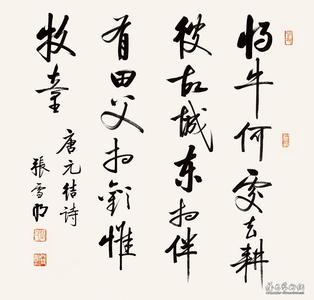 将牛何處去耕
彼故城東相伴
有田父相歡惟
牧童
唐元结詩
張雪明